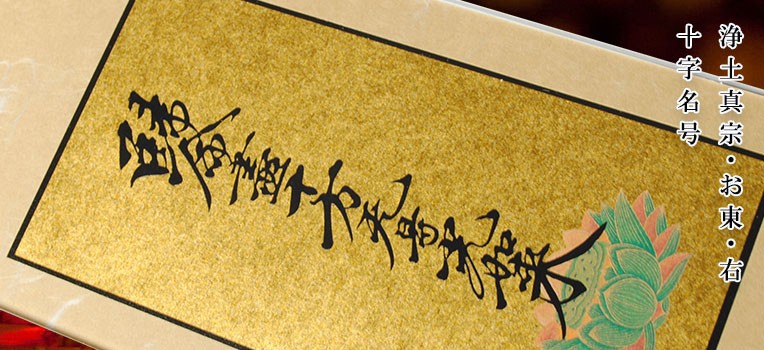 浄土真宗・お東・右
十字名号
歸命盡十方无导光如来